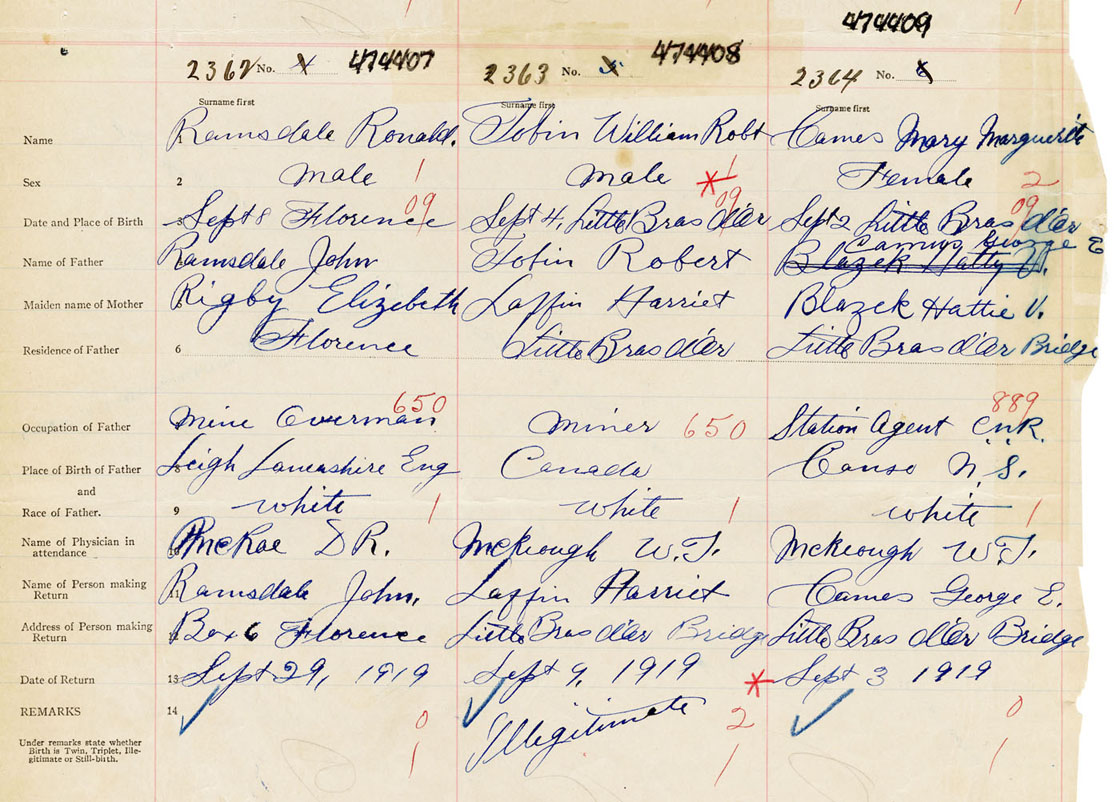 474409
2362 No. 4 474407 2363 No. 5 474408 2364 No. 6
Surname first Surname first Surname first
Name 1 Ramsdale Ronald. Tobin William Robt Cames Mary Marguerite
Sex 2 male 1 male 1 Female 2
Date and Place of Birth 3 Sept 8 Florence 09 Sept 4, Little Bras d'Or 09 Sept 2 Little Bras d'Or 09
Camus George E
Name of Father Ramsdale John Tobin Robert Blazek Hatty V.
Maiden name of Mother Rigby Elizebeth Laffin Harriet Blazek Hattie V.
Residence of Father 6 Florence Little Bras d'Or Little Bras d'Or Bridge
650 889
Occupation of Father mine Overman miner 650 Station Agent CNR.
Place of Birth of Father 8 Leigh Lancashire Eng Canada Canso N.S.
and
Race of Father. 9 white 1 white 1 white 1
Name of Physician in attendance 10 McRae D R. McKeough W.J. McKeough W.J.
Name of Person making Return 11 Ramsdale John. Laffin Harriet Cames George E.
Address of Person making Return 12 Box 6 Florence Little Bras d'Or Bridge Little Bras d'Or Bridge
Date of Return 13 Sept 29, 1919 Sept 9, 1919 Sept 3 1919
REMARKS 14 0 Illegitimate 2 0
Under remarks state whether
Birth is Twin, Triplet, Ille-
gitimate or Still-birth.
1 1 1